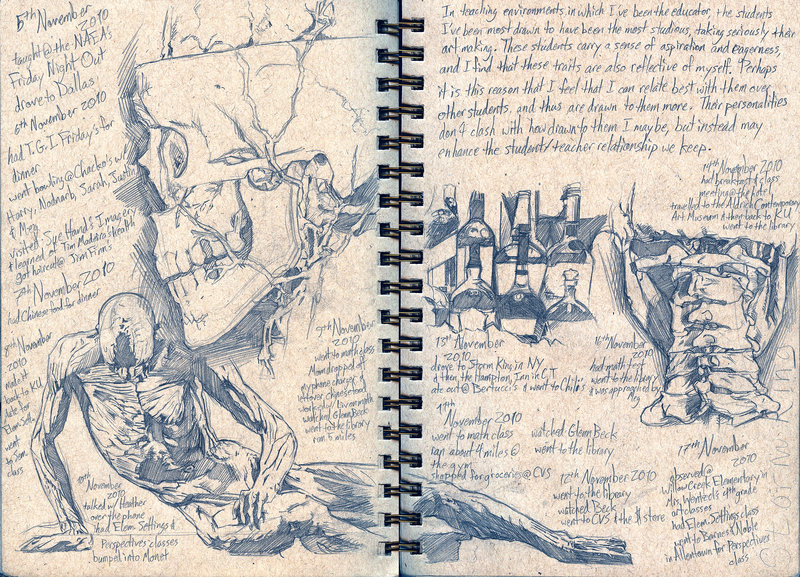 5th November
2010
taught @ the NAEA's
Friday Night Out
drove to Dallas
6th November 2010
had T.G.I Friday's for
dinner
went bowling @ Chacko's w/
Harry, Nodnarb, Sarah, Justin
& Meg
visited Sye Hand's Imagery
& learned of Tim Madeira's health
got haircut @ Jim Finns
7th November 2010
had Chinese food for dinner
8th November
2010
made it
back to KU
late for
Elem. Sett.
went
to Sem.
class
9th November
2010
went to math class
Mom dropped off
my phone charger &
leftover chinese food
worked w/ Live model
watched Glenn Beck
went to the library
ran 5 miles
10th
November
2010
talked w/ Heather
over the phone
had Elem. Settings &
Perspectives classes
bumped into Monet
In teaching environments in which I've been the educator, the students
I've been most drawn to have been the most studious, taking seriously their
art making. These students carry a sense of aspiration and eagerness,
and I find that these traits are also reflective of myself. Perhaps
it is this reason that I feel that I can relate best with them over
other students, and thus are drawn to them more. Their personalities
don't clash with how drawn to them I may be, but instead may
enhance the student/teacher relationship we keep.
14th November 2010
had breakfast & class
meeting @ the hotel
travelled to the Aldrich Contemporary
Art Museum & then back to KU
went to the library
13th November
2010
drove to Storm King in NY
& then the Hampton Inn in CT
ate out @ Bertucci's & went to Chili's
16th November
2010
had math test
went to the library
& was appropriated by
Meg
11th
November 2010
went to math class
ran about 4 miles @
the gym
shopped for groceries @ CVS
watched Glenn Beck
went to the library
12th November 2010
went to the library
watched Beck
went to CVS & the $ store
17th November
2010
observed @
Willow Creek Elementary in
Mrs. 4th grade
art classes
had Elem. Settings class
went to Barnes & Noble
in Allentown for Perspectives
class